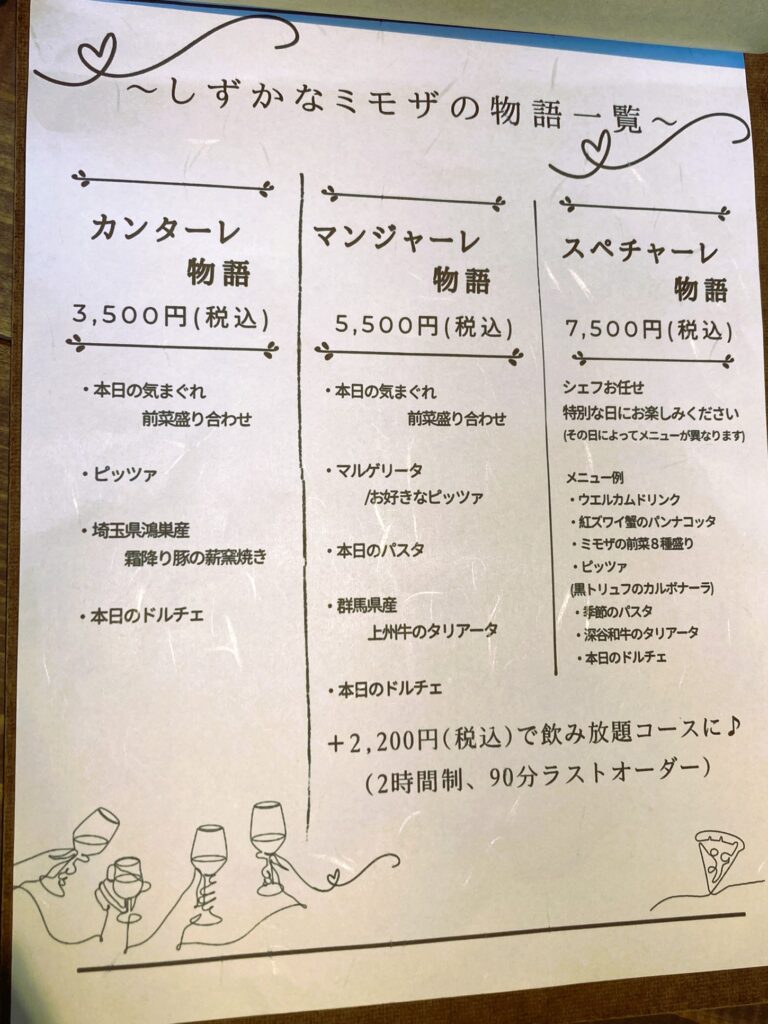 ～しずかなミモザの物語一覧～
カンターレ
物語
3,500円(税込)
・本日の気まぐれ
前菜盛り合わせ
・ピッツァ
・埼玉県鴻巣産
霜降り豚の薪窯焼き
・本日のドルチェ
マンジャーレ
物語
5,500円(税込)
・本日の気まぐれ
前菜盛り合わせ
・マルゲリータ
/お好きなピッツァ
・本日のパスタ
・群馬県産
上州牛のタリアータ
・本日のドルチェ
スペチャーレ
物語
7,500円(税込)
シェフお任せ
特別な日にお楽しみください
(その日によってメニューが異なります)
メニュー例
・ウエルカムドリンク
・紅ズワイ蟹のパンナコッタ
・ミモザの前菜８種盛り
・ピッツァ
(黒トリュフのカルボナーラ)
・季節のパスタ
・深谷和牛のタリアータ
・本日のドルチェ
＋2,200円(税込)で飲み放題コースに♪
(2時間制、90分ラストオーダー)